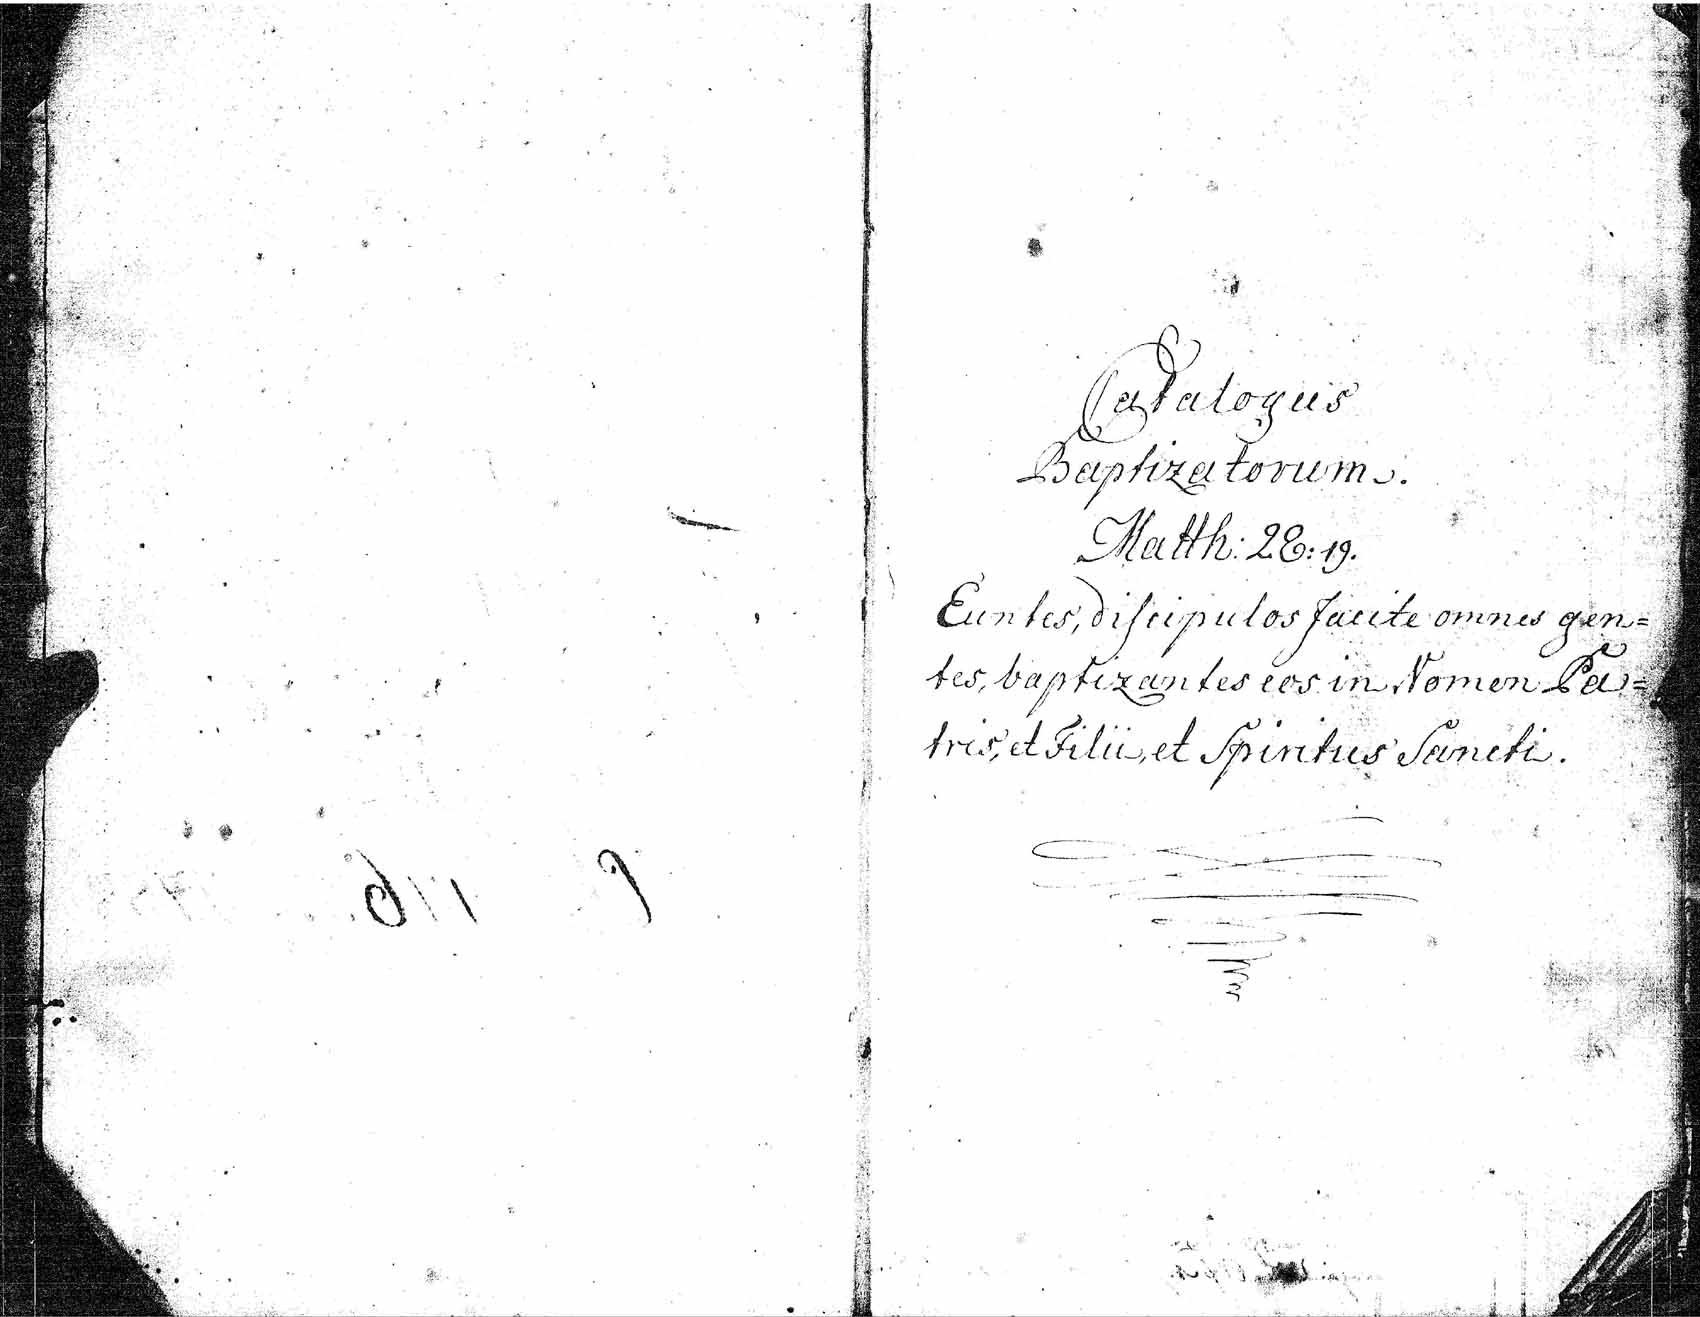 Catalogus
Baptizatorum.
Matth: 28: 19.
Euntes, discipulos facite omnes gen=
tes, baptizantes eos in Nomen Pa=
tris, et Filii, et Spiritus Sancti.